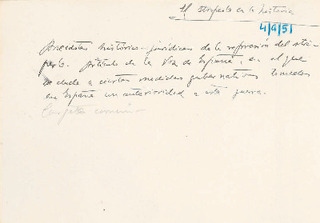 El estraperlo en la historia
4/4/51
Anécdotas histórico-jurídicas de la represión del estra-
perlo. Artículo de La Voz de España, en el que
se alude a ciertas medidas gubernativas tomadas
en España con anterioridad a esta guerra.